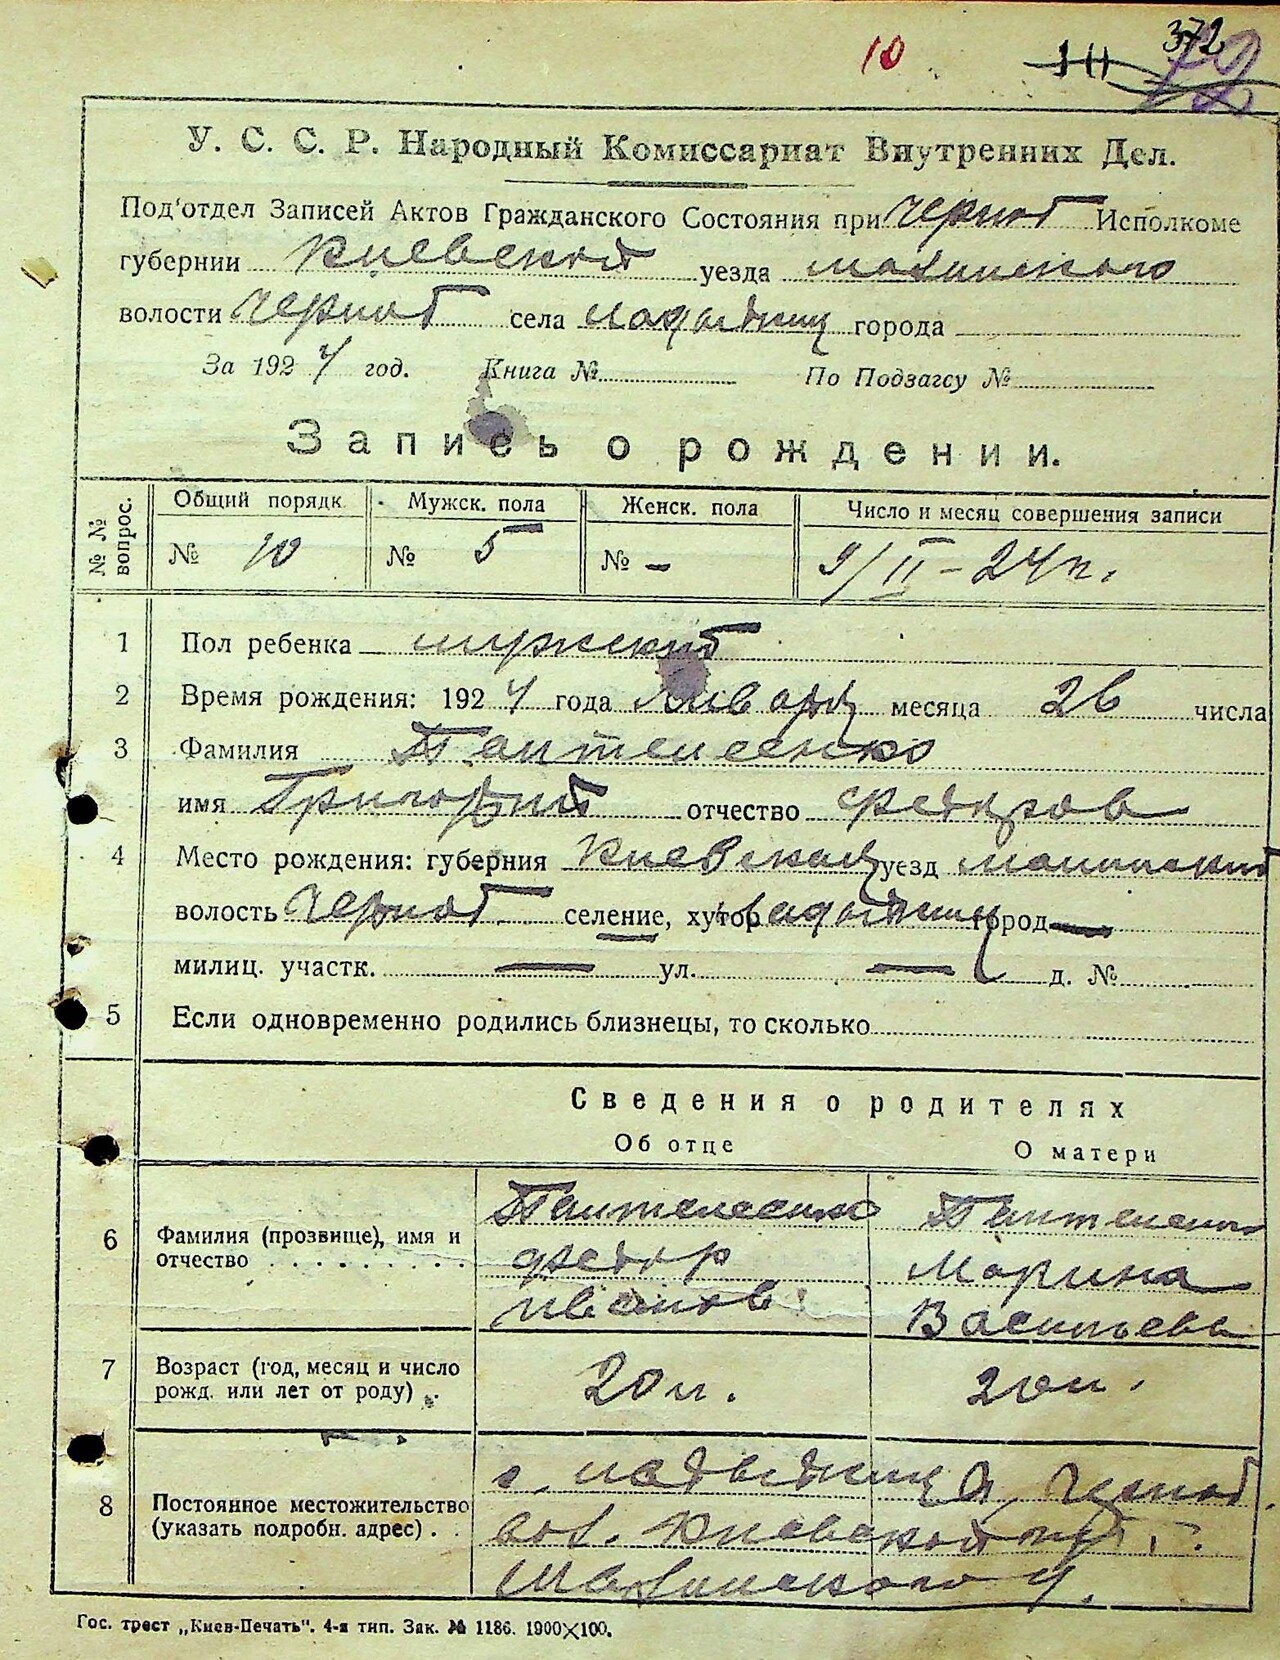 10 10 372
У. С. С. Р. Народный Комиссариат Внутренних Дел.
Под'отдел Записей Актов Гражданского Состояния при Черноб Исполкоме
губернии Киевской уезда малинского
волости Черноб села города
За 1924 год. Книга № По Подзагсу №
Запись о рождении.
№ № вопрос.
Общий порядк. Мужск. пола Женск. пола Число и месяц совершения записи
№ 10 № 5 № – 9/II – 24 г.
1 Пол ребенка мужской
2 Время рождения: 1924 года Января месяца 26 числа
3 Фамилия Пантелеенко
имя Григорий отчество Федоров
4 Место рождения: губерния Киевская уезд малинский
волость Черноб. селение, хутор город —
милиц. участк. — ул. — д. №
5 Если одновременно родились близнецы, то сколько
Сведения о родителях
Об отце О матери
6 Фамилия (прозвище), имя и отчество
Пантелеенко Федор Иванов
Пантелеенко Марина Васильева
7 Возраст (год, месяц и число рожд. или лет от роду)
20 л. 20 л.
8 Постоянное местожительство (указать подробн. адрес)
с. Черноб.
вол. Киевской г.
Малинского у.
Гос. трест „Киев-Печать". 4-я тип. Зак. № 1186. 1900×100.